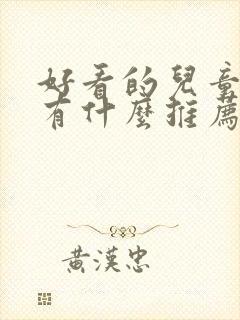 好看的兒童
有什麼推薦
黃漢忠